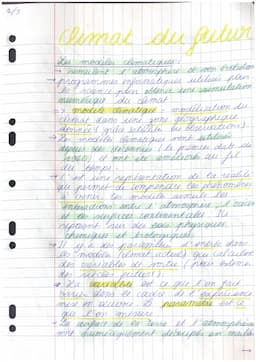 2/3
Climat du futur
Les modèles climatiques :
→ simulent l'atmosphère et son évolution
→ programmes informatiques utilisés pour
la science pour obtenir une simulation
numérique du climat
→ modèle climatique = modélisation du
climat dans une zone géographique
données (grâce satellite, observations)
→ Les modèles climatiques sont utilisés
depuis des décennies (la première date de
1960) et ont été améliorés au fil
du temps
→ C'est une représentation de la réalité
qui permet de comprendre les phénomènes
les modèles simulent les
interactions entre l'atmosphère, l'océan
et les surfaces continentales. Ils
reposent sur des lois physiques,
chimiques et biologiques.
→ Il y a des paramètres d'entrée dans
les modèles (climat actuel) qui calculent
des variables de sortie (pour
des siècles futurs).
→ La variable est ce que l'on fait
varier dans le cadre de l'expérience
mise en œuvre. Le paramètre est ce
que l'on mesure
→ La surface de la Terre et l'atmosphère
sont numériquement découpés en mailles